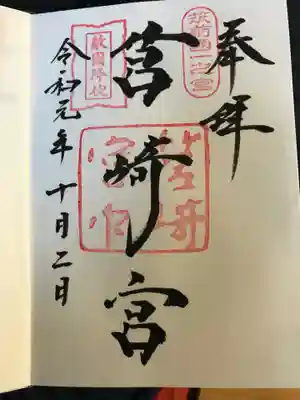 奉拝
筑前國一之宮
筥崎宮
敵国降伏
令和元年十月二日